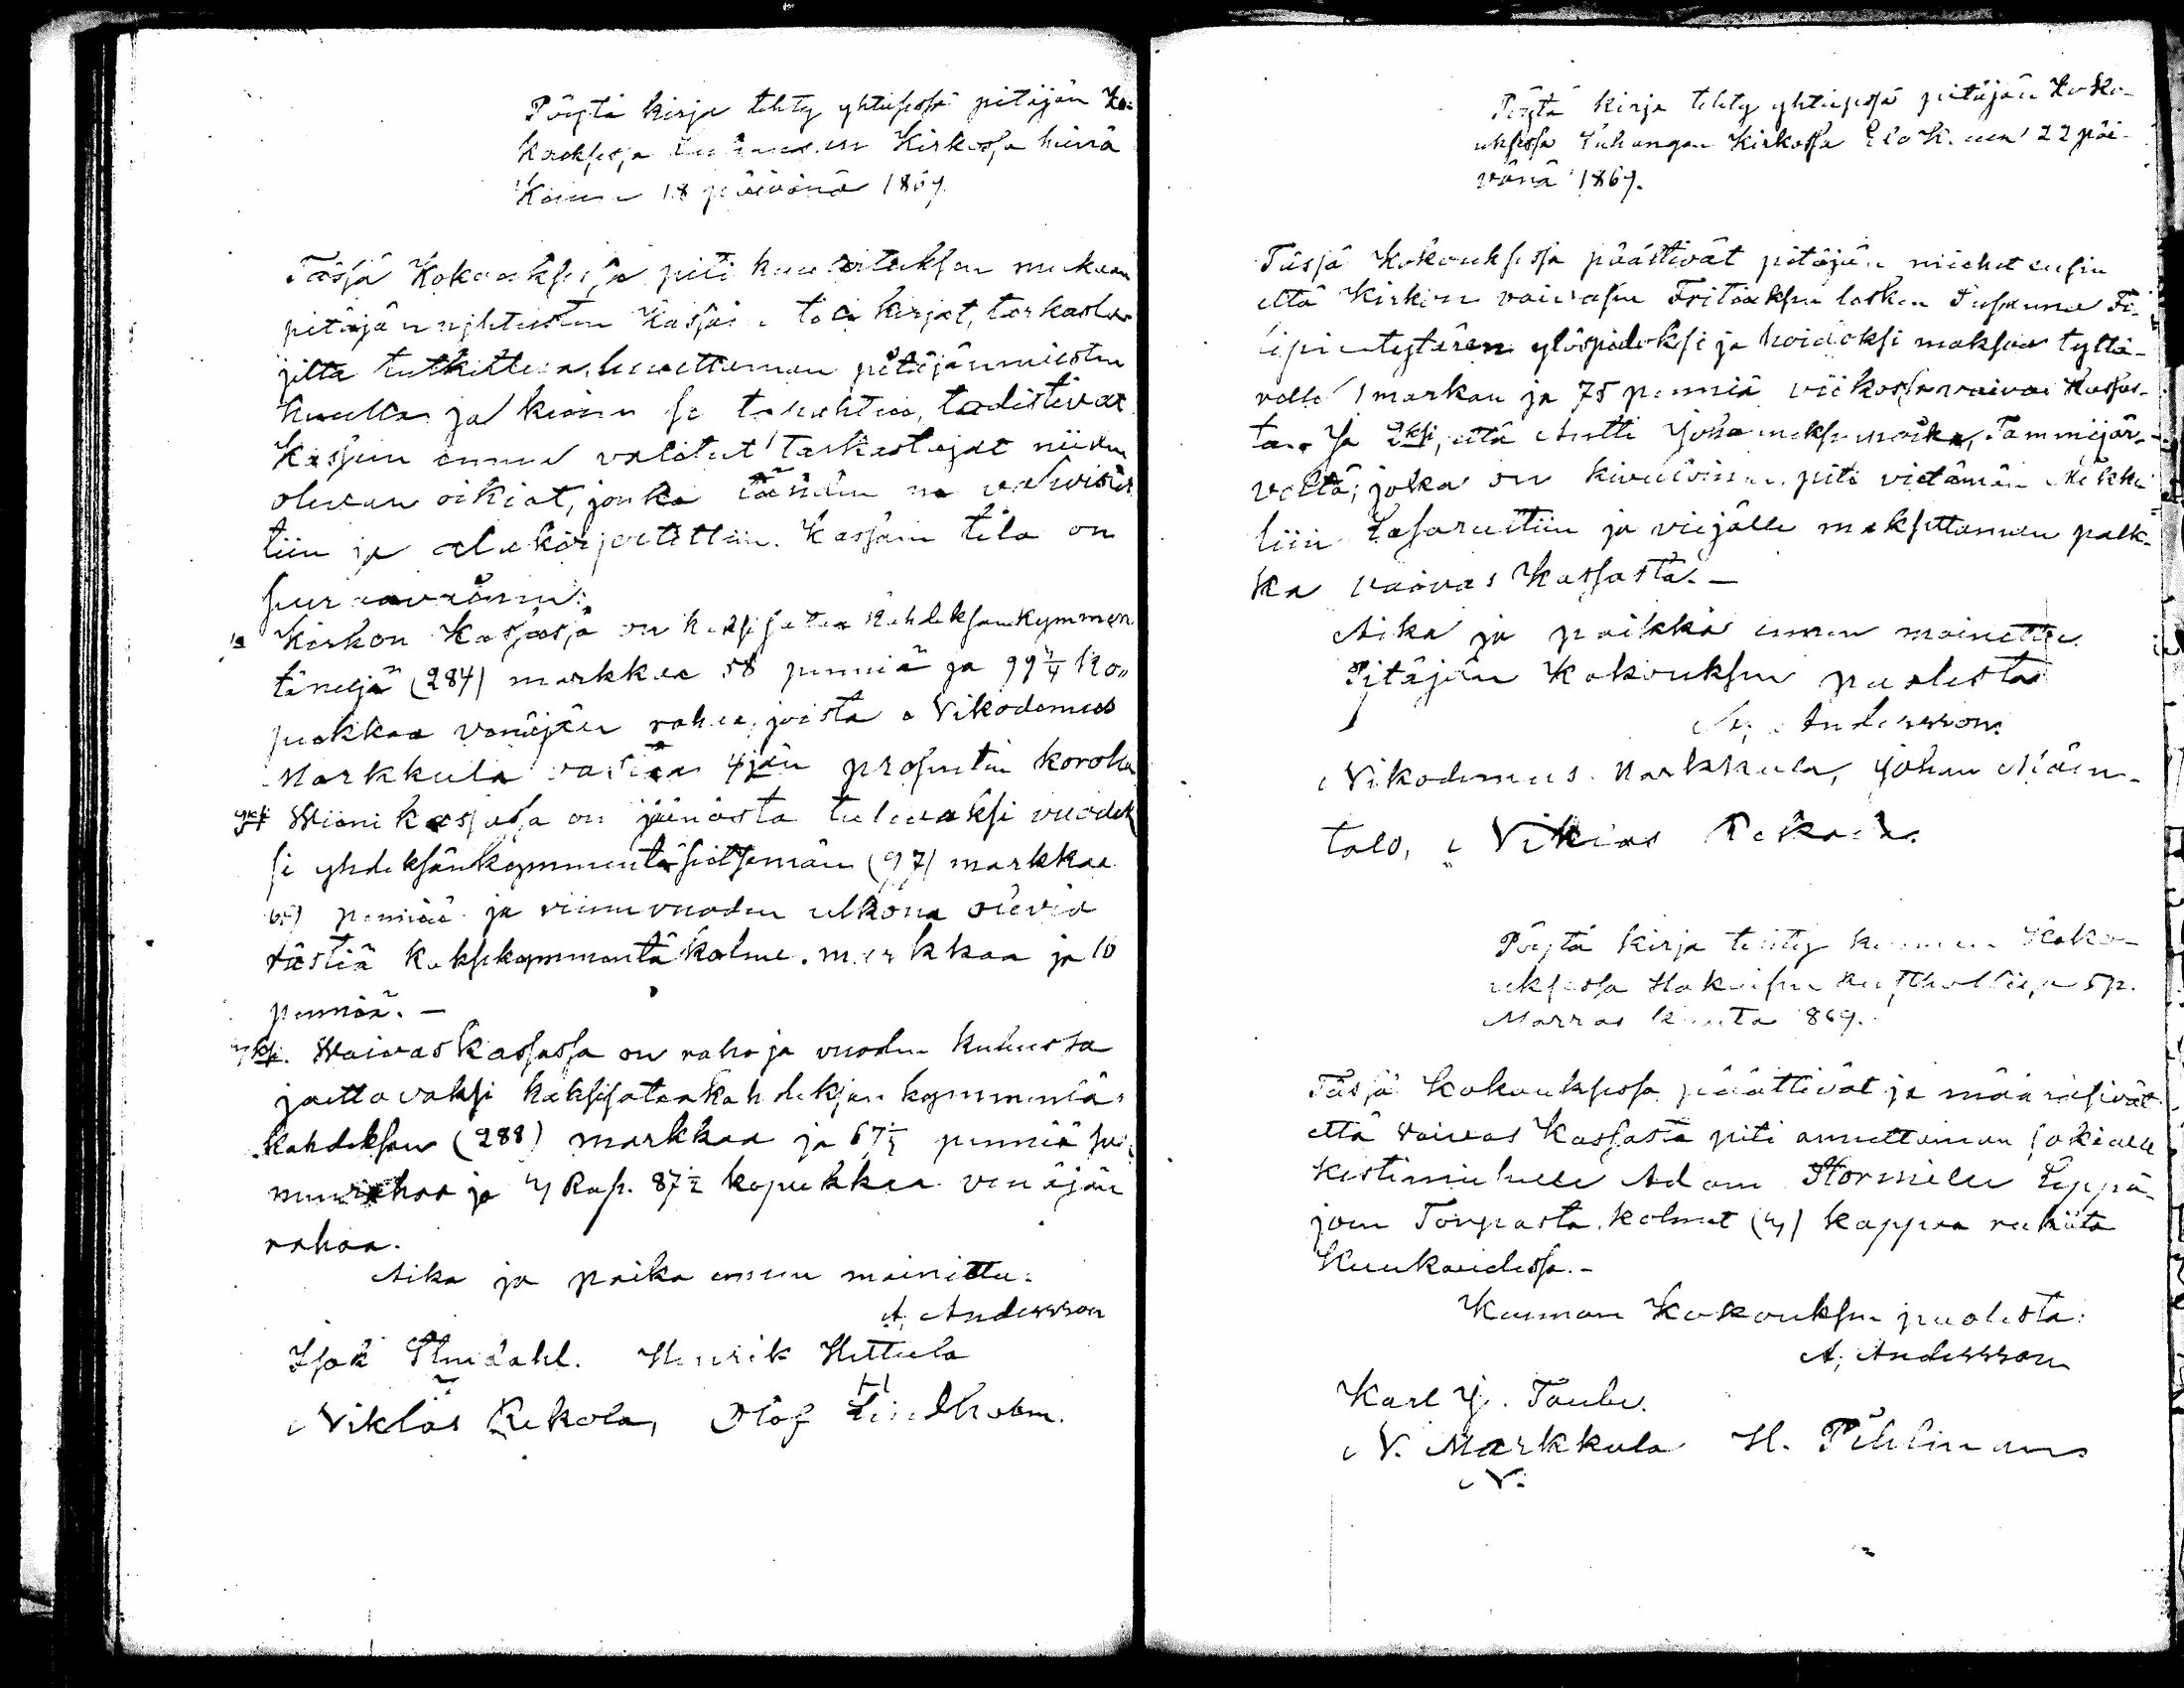 Pöytä kirja tehty yhteisessä pitäjän Ko-
kouksessa Kirkossa heinä
Kuun 18 päivänä 1869.
Tässä Kokouksessa piti kuulutuksen mukaan
pitäjän yhteisten Kassain tili kirjat, tarkastu-
jilta luettaman pitäjänmiesten
kuulla ja kuin se tapahtui, todistivat
Kassain ennen valitut tarkastajat niiden
olevan oikiat, jonka tähden ne vahvistet-
tiin ja alle kirjoitettiin. Kassain tila on
seuraavainen:
1o Kirkon Kassassa on kaksisataa kahdeksankymmen-
täneljä (284) markkaa 58 penniä ja 99 3/4 ko-
pekkaa venäjän rahaa, joista Nikodemus
Markkula vastaa 4jän prosentin korolla
2ksi Wiinikassassa on jäänöstä tulevaksi vuodek-
si yhdeksänkymmentäseitsemän (97) markkaa
penniä ja viime vuoden ulkona olevia
rästiä kaksikymmentäkolme markkaa ja 10
penniä. —
3ksi. Waivaskassassa on rahoja vuoden kuluessa
jaettavaksi kaksisataakahdeksankymmentä-
kahdeksan (288) markkaa ja 67 1/2 penniä suo-
men rahaa ja 3 Rup. 87 1/2 kopekkaa venäjän
rahaa.
Aika ja paika ennen mainittu:
A. Andersson
Isak Strudahl. Henrik Hettula
Niklas Rekola, Olof Lindholm.
Pöytä kirja tehty yhteisessä pitäjän Koko-
uksessa Luhangan Kirkossa Elo K.uun 22 päi-
vänä 1869.
Tässä Kokouksessa päättivät pitäjän miehet ensin
että Kirkon vaivasen lasken Susanna Fi-
lipintytären ylöspidoksi ja hoidoksi maksaa tyttä-
relle 1 markan ja 75 penniä viikossa vaivas Kassas-
ta. Ja 2ksi, että Antti Johanneksenpoika, Tammijär-
veltä, joka on kivulöinen, piti vietämän Mikke-
liin Lasarettiin ja viejälle maksettaman palk-
ka vaivas Kassasta. —
Aika ja paikka ennen mainittu.
Pitäjän Kokouksen puolesta
A. Andersson.
Nikodemus Markkula, Johan Mäen-
talo, Niklas Rekola.
Pöytä kirja tehty kunnan Koko-
uksessa Hakuisen kesthollissa 5 p.
Marras kuuta 1869.
Tässä Kokouksessa päättivät ja määräsivät
että vaivas Kassasta piti annettaman sokialle
kestimiehelle Adam Stormille Leppä-
joen Torpasta, kolmet (3) kappaa rukiita
Kuukaudessa. —
Kunnan Kokouksen puolesta:
A. Andersson
Karl J. Taube.
N. Markkula H. Pihlman
N.